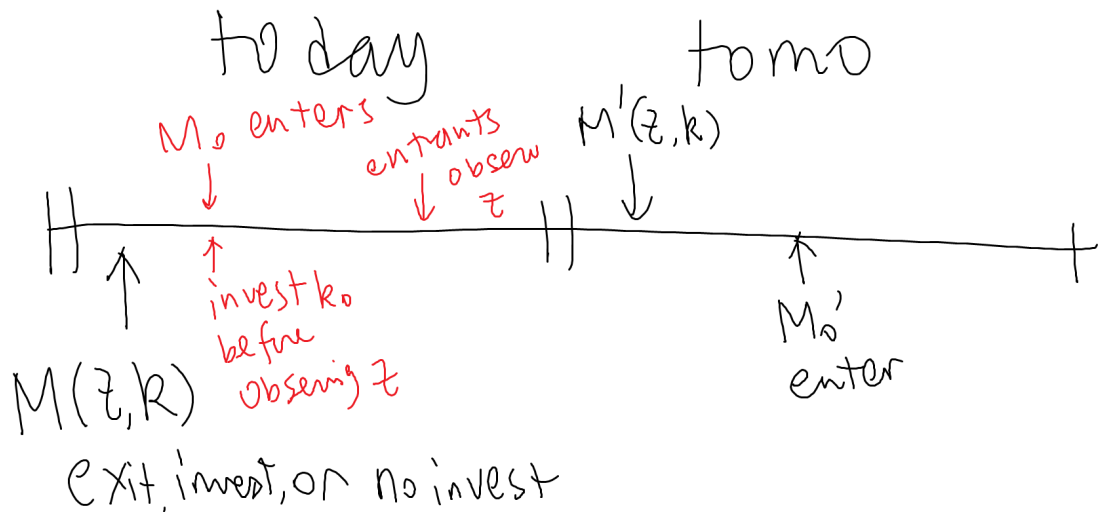 today
tomo
M₀ enters
entrants
observe
z
M'(z,k)
invest k₀
before
observing z
M₀'
enter
M(z,k)
exit, invest, or no invest